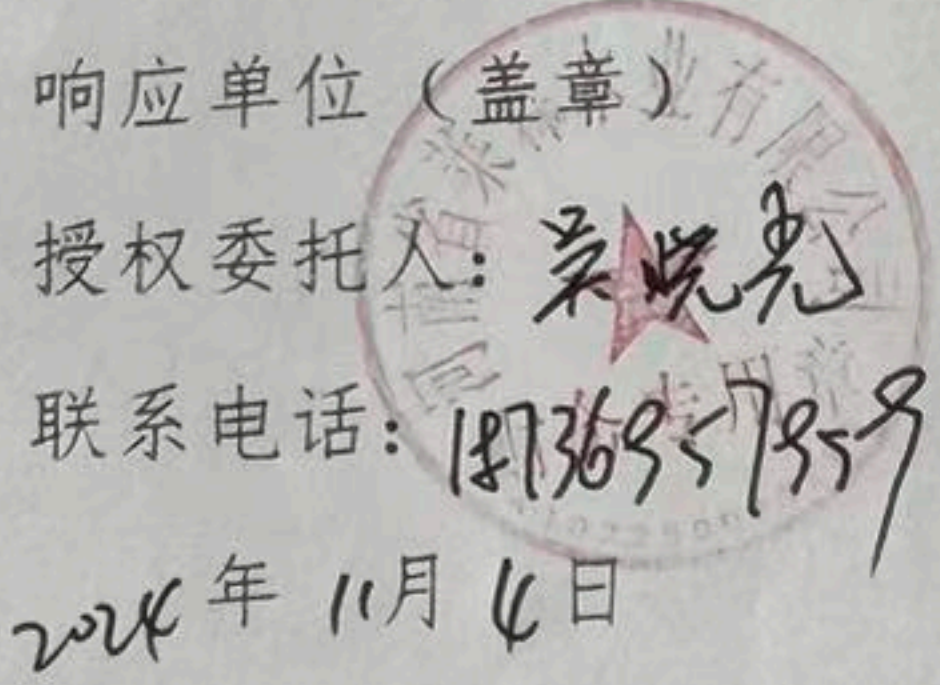 响应单位（盖章）
授权委托人：吴晓亮
联系电话：18736957959
2024年11月4日